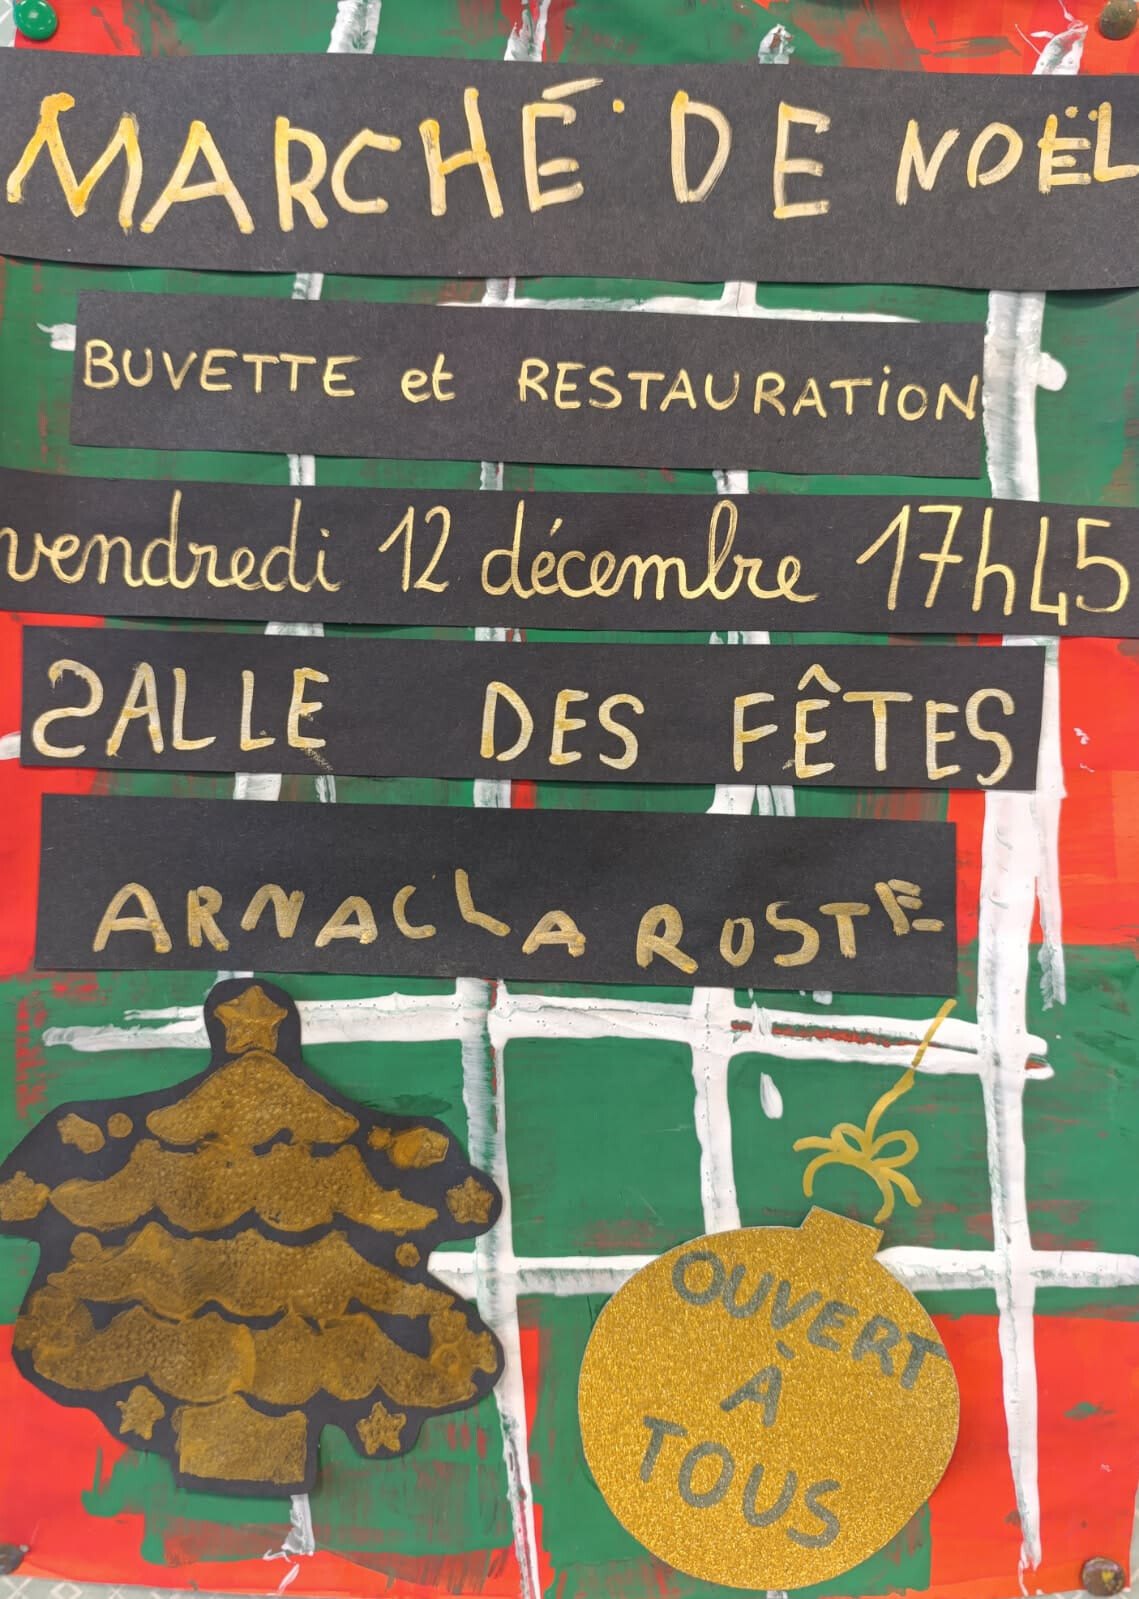 MARCHÉ DE NOËL
BUVETTE et RESTAURATION
vendredi 12 décembre 17h45
SALLE DES FÊTES
ARNAC LA ROSTE
OUVERT
À
TOUS